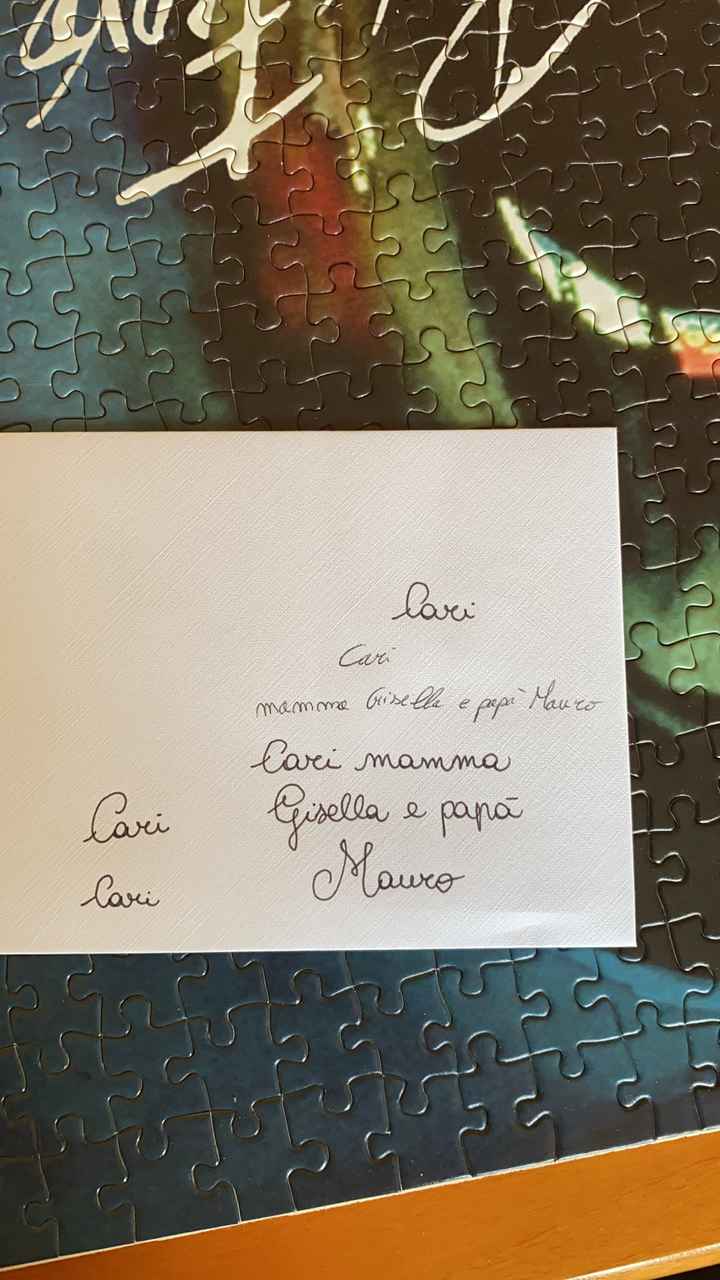 Cari
Cari
mamma Gisella e papà Mauro
Cari mamma
Gisella e papà
Mauro
Cari
Cari